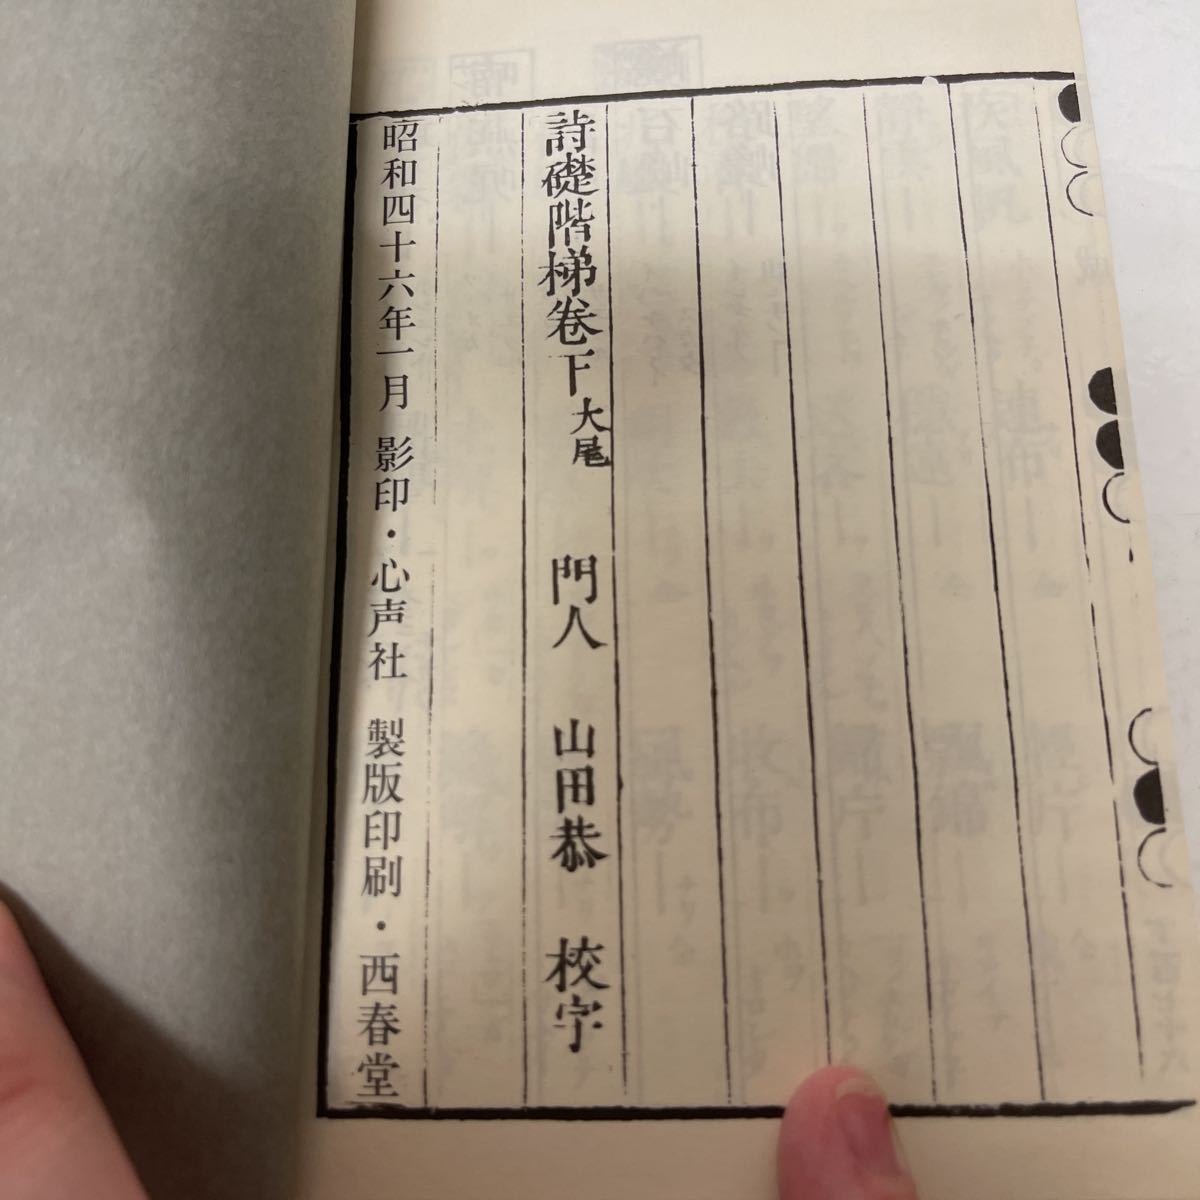 詩礎階梯卷下 大尾 門人 山田恭 校字
昭和四十六年一月 影印・心声社 製版印刷・西春堂